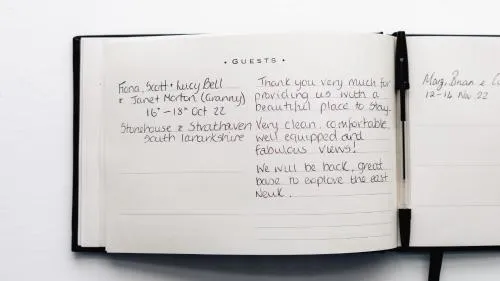 • GUESTS •
Fiona, Scott + Lucy Bell
& Janet Morton (Granny)
16th – 18th Oct 22
Stonehouse & Strathaven
South Lanarkshire
Thank you very much for
providing us with a
beautiful place to stay.
Very clean, comfortable,
well equipped and
fabulous views!
We will be back, great
base to explore the east
Neuk.
Marg, Brian &
12-14 Nov. 22